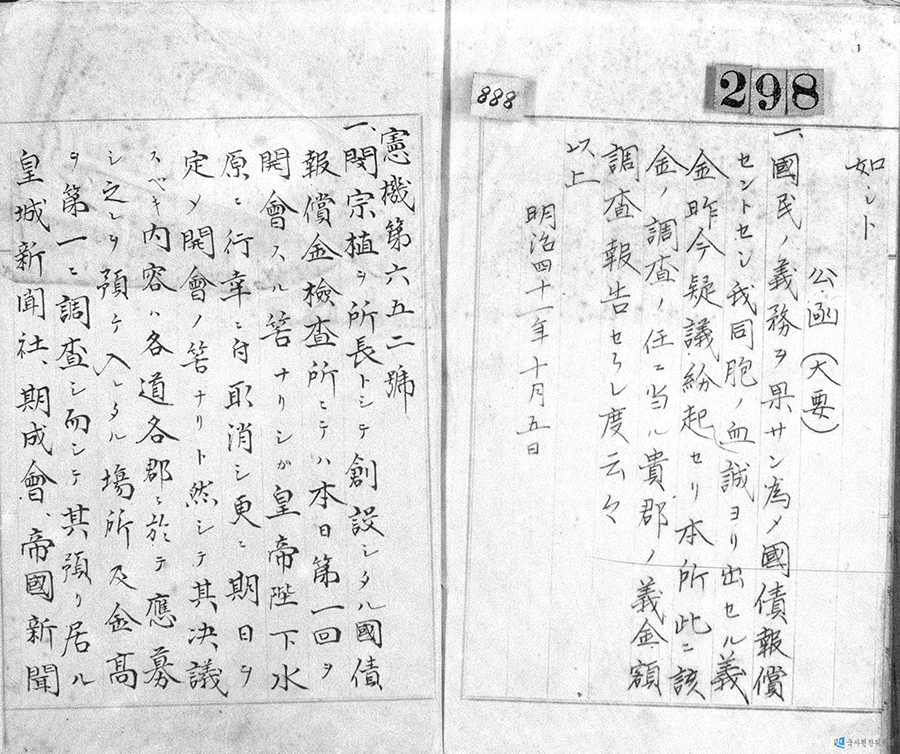 298
888
如シト
公函(大要)
一、國民ノ義務ヲ果サン爲メ國債報償
セントセシ我同胞ノ血誠ヨリ出セル義
金昨今疑議紛起セリ本所此ニ該
金ノ調査ノ任ニ当ル貴郡ノ義金額
調査報告セラレ度云々
以上
明治四十一年十月五日
憲機第六五二號
一、閔宗植ヲ所長トシテ創設シタル國債
報償金檢査所ニテハ本日第一回ヲ
開會スル筈ナリシガ皇帝陛下水
原ニ行幸ニ付取消シ更ニ期日ヲ
定メ開會ノ筈ナリト然シテ其決議
スベキ内容ハ各道各郡ニ於テ應募
シ之レヲ預ケ入レタル場所及金高
ヲ第一ニ調査シ而シテ其預リ居ル
皇城新聞社、期成會、帝國新聞
국사편찬위원회